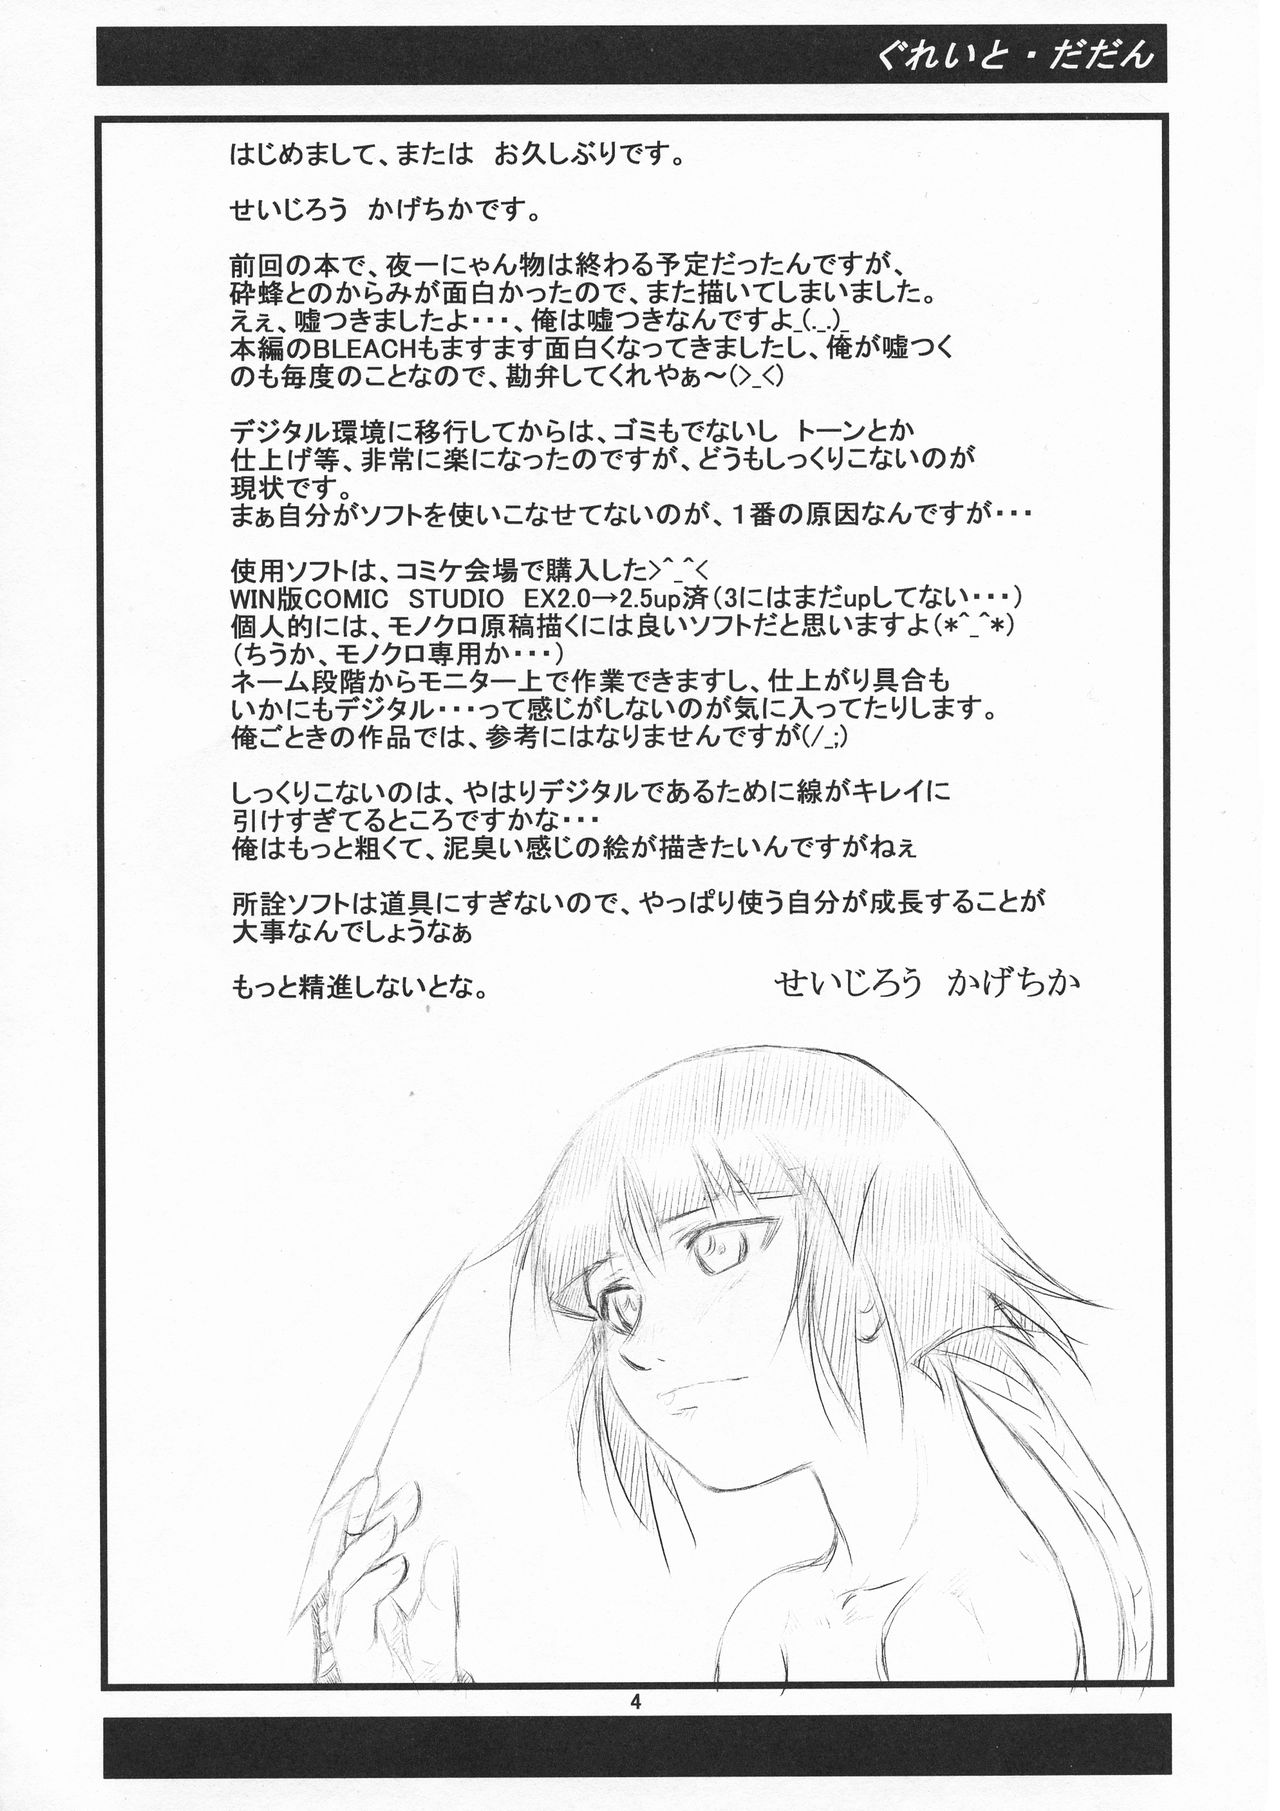 ぐれいと・だだん
はじめまして、または　お久しぶりです。
せいじろう　かげちかです。
前回の本で、夜一にゃん物は終わる予定だったんですが、
砕蜂とのからみが面白かったので、また描いてしまいました。
えぇ、嘘つきましたよ・・・、俺は嘘つきなんですよ_(._.)_
本編のBLEACHもますます面白くなってきましたし、俺が嘘つく
のも毎度のことなので、勘弁してくれやぁ～(>_<)
デジタル環境に移行してからは、ゴミもでないし　トーンとか
仕上げ等、非常に楽になったのですが、どうもしっくりこないのが
現状です。
まぁ自分がソフトを使いこなせてないのが、１番の原因なんですが・・・
使用ソフトは、コミケ会場で購入した>^_^<
WIN版COMIC　STUDIO　EX2.0→2.5up済（3にはまだupしてない・・・）
個人的には、モノクロ原稿描くには良いソフトだと思いますよ（*^_^*）
（ちうか、モノクロ専用か・・・）
ネーム段階からモニター上で作業できますし、仕上がり具合も
いかにもデジタル・・・って感じがしないのが気に入ってたりします。
俺ごときの作品では、参考にはなりませんですが(/_;)
しっくりこないのは、やはりデジタルであるために線がキレイに
引けすぎてるところですかな・・・
俺はもっと粗くて、泥臭い感じの絵が描きたいんですがねぇ
所詮ソフトは道具にすぎないので、やっぱり使う自分が成長することが
大事なんでしょうなぁ
もっと精進しないとな。
せいじろう　かげちか
4